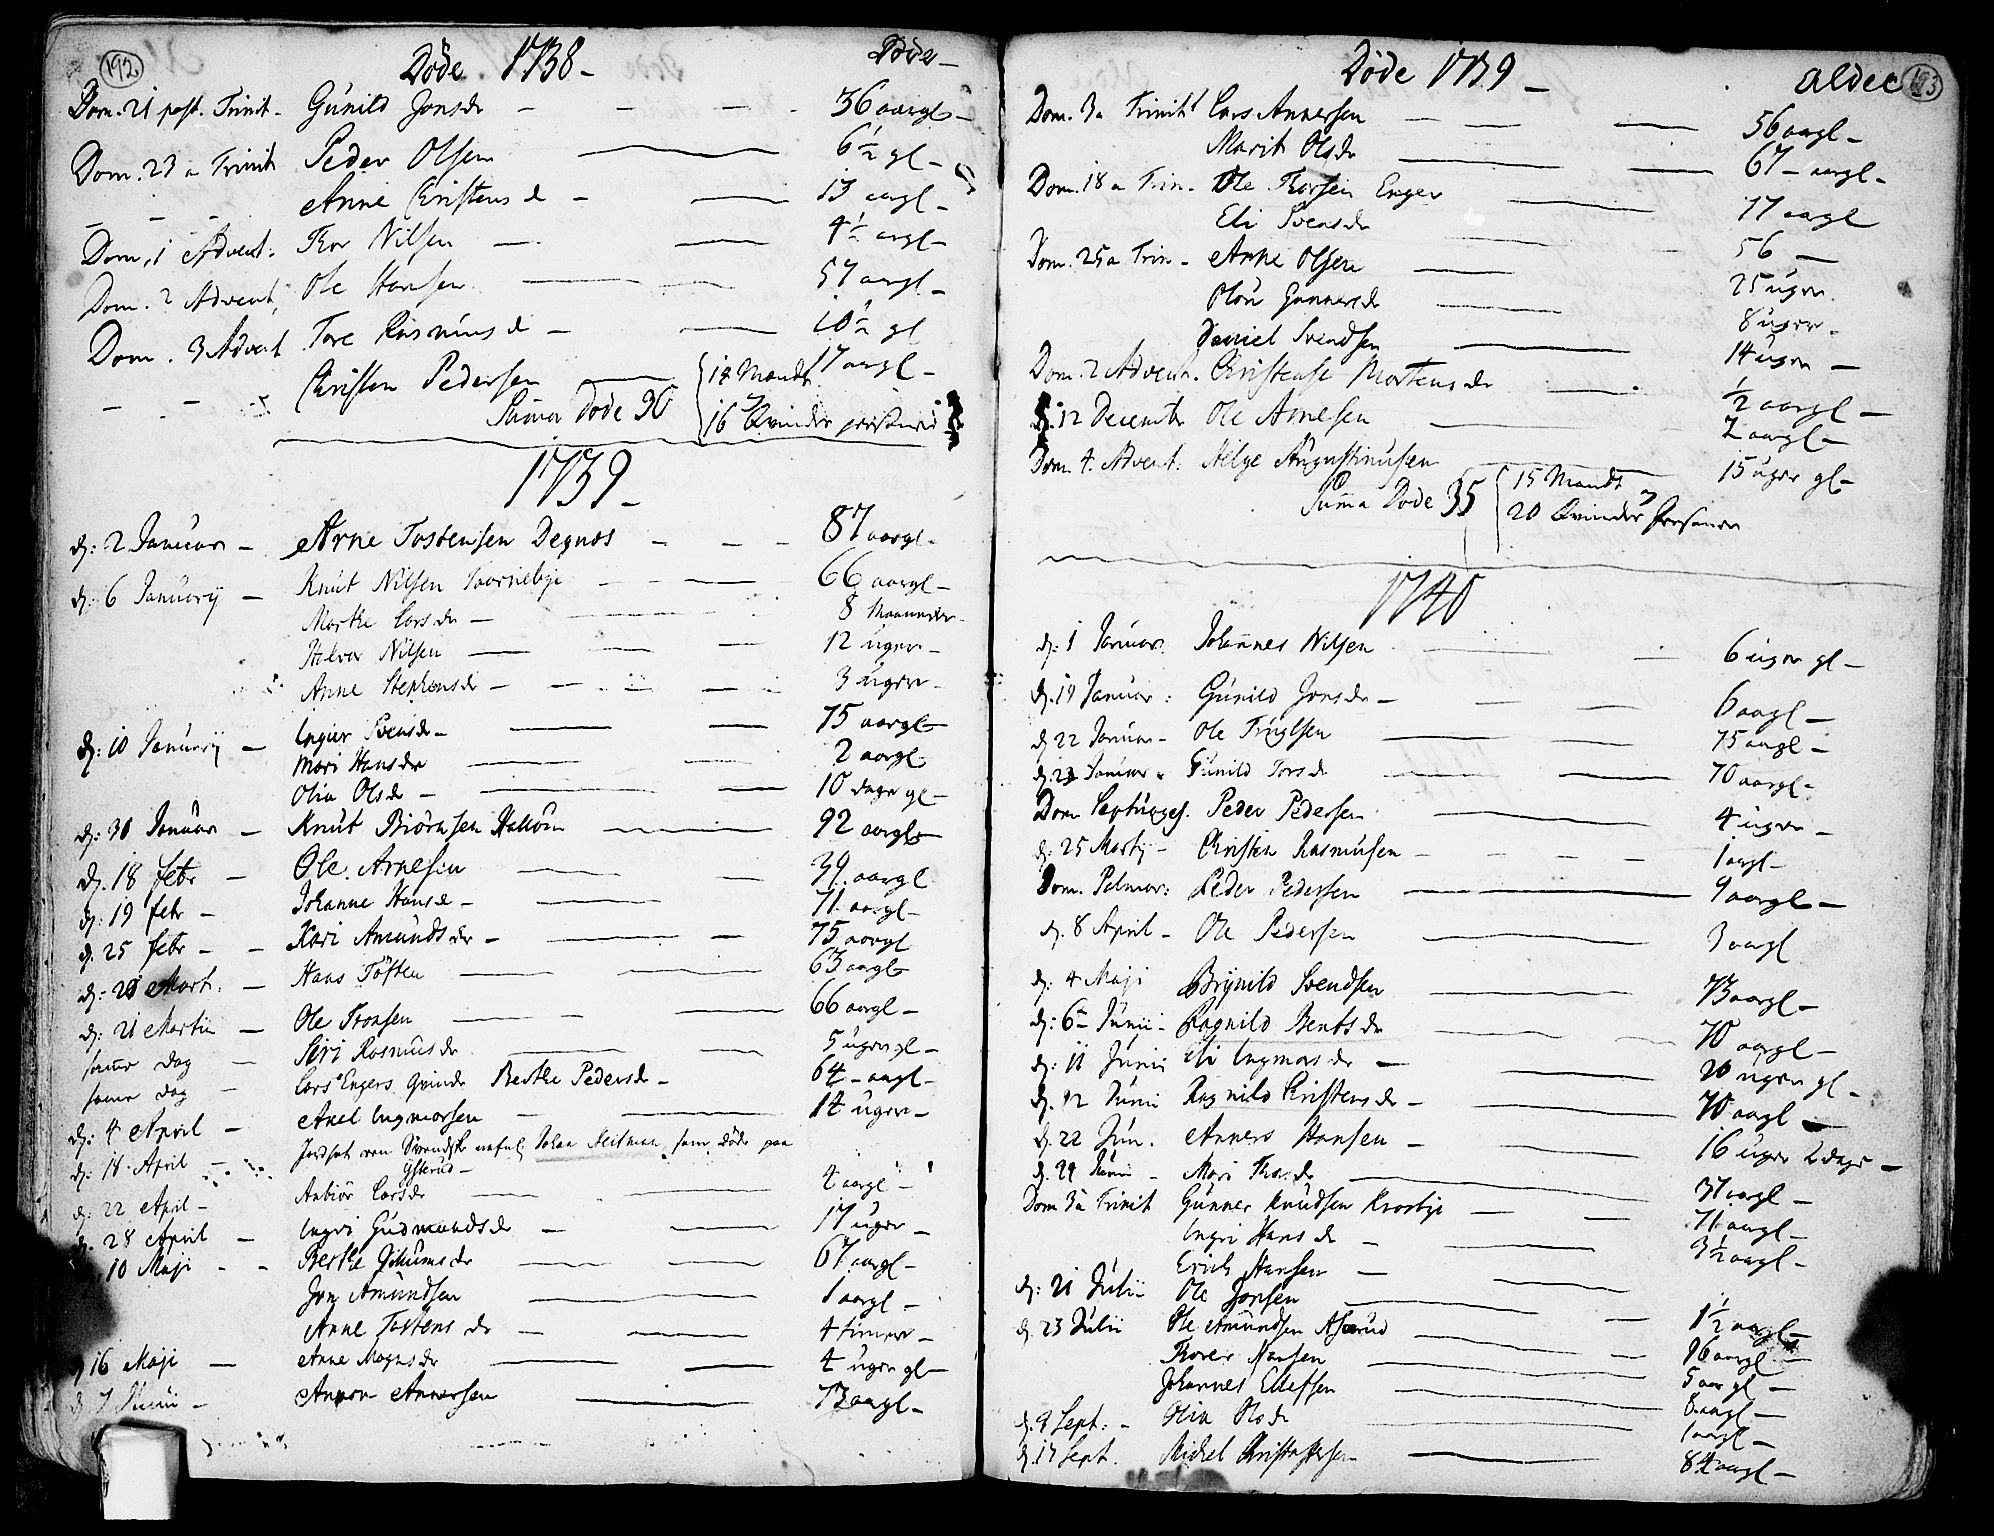 192
Døde 1738 - Døde -
Dom. 21 post. Trinit - Gunild Jonsdr - - - 36 aargl -
Dom. 23 a Trinit Peder Olsen 6 1/2 gl -
- - - Anne Christensd - 13 aargl -
Dom. 1 Advent. Thor Nilsen 4 1/2 aargl -
Dom. 2 Advent, Ole Hansen 57 aargl -
Dom. 3 Advent Tore Rasmusd - 10 1/2 gl
- - Christen Pedersen 17 aargl -
Summa Døde 30 { 14 Mandt
16 Qvinder personer
1739 -
d: 2 Januar - Arne Tostensen Degnos - - - 87 aargl -
d: 6 Januarij - Knut Nilsen 66 aargl -
Marthe Larsdr - 8 Maaneder -
Halvor Nilsen 12 uger -
Anne Stephensdr - 3 uger -
d: 10 Januarij - Ingier Svensdr - 75 aargl -
Mari Hansdr 2 aargl -
Olia Olsdr - 10 dage gl -
d: 30 Januar - Knut Biörnsen Halloum 92 aargl -
d. 18 febr - Ole Arnesen 39 aargl
d: 19 febr - Johanne Hansd - 71 aargl -
d. 25 febr - - Kari Amundsdr - 75 aargl
d: 20 Mart. - Hans Töften 63 aargl
d: 21 Martii - Ole Tronsen 66 aargl -
samme dag - Siri Rasmusdr 5 uger gl -
samme dag - Lars Engers Qvinde Berthe Pedersdr - 64 - aargl -
d: 4 April - Axel Ingmorsen - 14 uger -
d: 18 April - Jordsat een Svendsk nafnl Johan som döde paa
d: 22 April - Anbiör Larsdr 4 aargl -
d. 28 April - Ingri Gudmundsdr - 17 uger -
10 Maji - - Berthe 67 aargl -
Jon Amundsen 1 aargl -
Anne Tostensdr - 4 timer -
16 Maji - Anne Magnsdr 4 uger gl -
d 7 Junii - Anders Andersen 73 aargl -
Døde 1739 - Alder 193
Dom. 3a Trinit Lars Andersen 56 aargl -
Marit Olsdr 67 - aargl -
Dom. 18 a Trin. Ole Thorsen Enger 77 aargl
Eli Svensdr 56 -
Dom. 25 a Trin - Arne Olsen 25 uger
Olou Gunnersdr 8 uger -
Daniel Svendsen 14 uger -
Dom. 2 Advent. Christense Mortensdr 1/2 aargl -
d. 12 Decembr Ole Arnesen 2 aargl -
Dom. 4. Advent. Helge Augustinusen 15 uger gl -
Summa Døde 35 { 15 Mandt
20 Qvinder Personer
1740
d: 1 Januar. Johannes Nilsen 6 uger gl -
d. 19 Januar: Gunild Jonsdr - 6 aargl -
d 22 Januar - Ole Truglsen 75 aargl -
d. 23 Januar - Gunild Torsdr 70 aargl -
Dom Septuages. Peder Pedersen 4 uger -
d: 25 Martij - Christen Rasmusen - 1 aargl -
Dom. Palmar: Peder Pedersen 9 aargl -
d. 8 April - Ole Pedersen 3 aargl
d. 4 Maji Brÿnild Svendsen 73 aargl -
d: 6 Junii - Ragnild Bentsdr 70 aargl -
d: 11 Junii Eli Ingmorsdr - 20 uger gl -
d. 12 Junii Ragnild Christensdr - 70 aargl -
d. 22 Jun. Anners Hansen - 16 uger 2 dage -
d. 29 Junii - Mari Thordr 37 aargl -
Dom 3a Trinit Gunner Knudsen Krosbye 71 aargl -
Ingri Hansdr - 3 1/2 aargl -
Erich Hansen -
d: 21 Julii Ole Jonsen 1 1/2 aargl -
d. 23 Julii Ole Amundsen Aserud 86 aargl -
Thorer Hansen 5 aargl -
Johannes Ellefsen 8 aargl -
d. 9 Sept: - Olia Olsdr 1 aargl -
d. 17 Sept. Michel Christophersen 84 aargl -